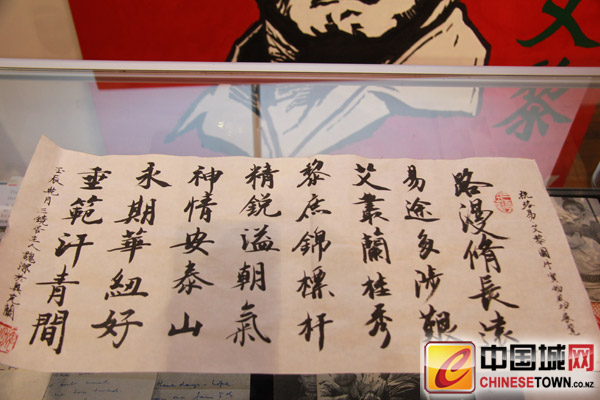 艾黎
祝路易艾黎
路漫脩長遠
易途多涉艱
艾叢蘭桂秀
黎庶錦標杆
精銳溢朝氣
神情安泰山
永期華紐好
垂範汗青間
壬辰
中国城网
CHINESETOWN.CO.NZ